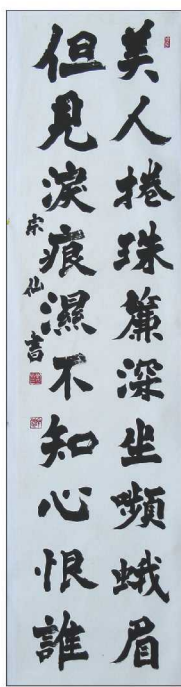 美人捲珠簾深坐嚬蛾眉
但見淚痕濕不知心恨誰
宗仙書